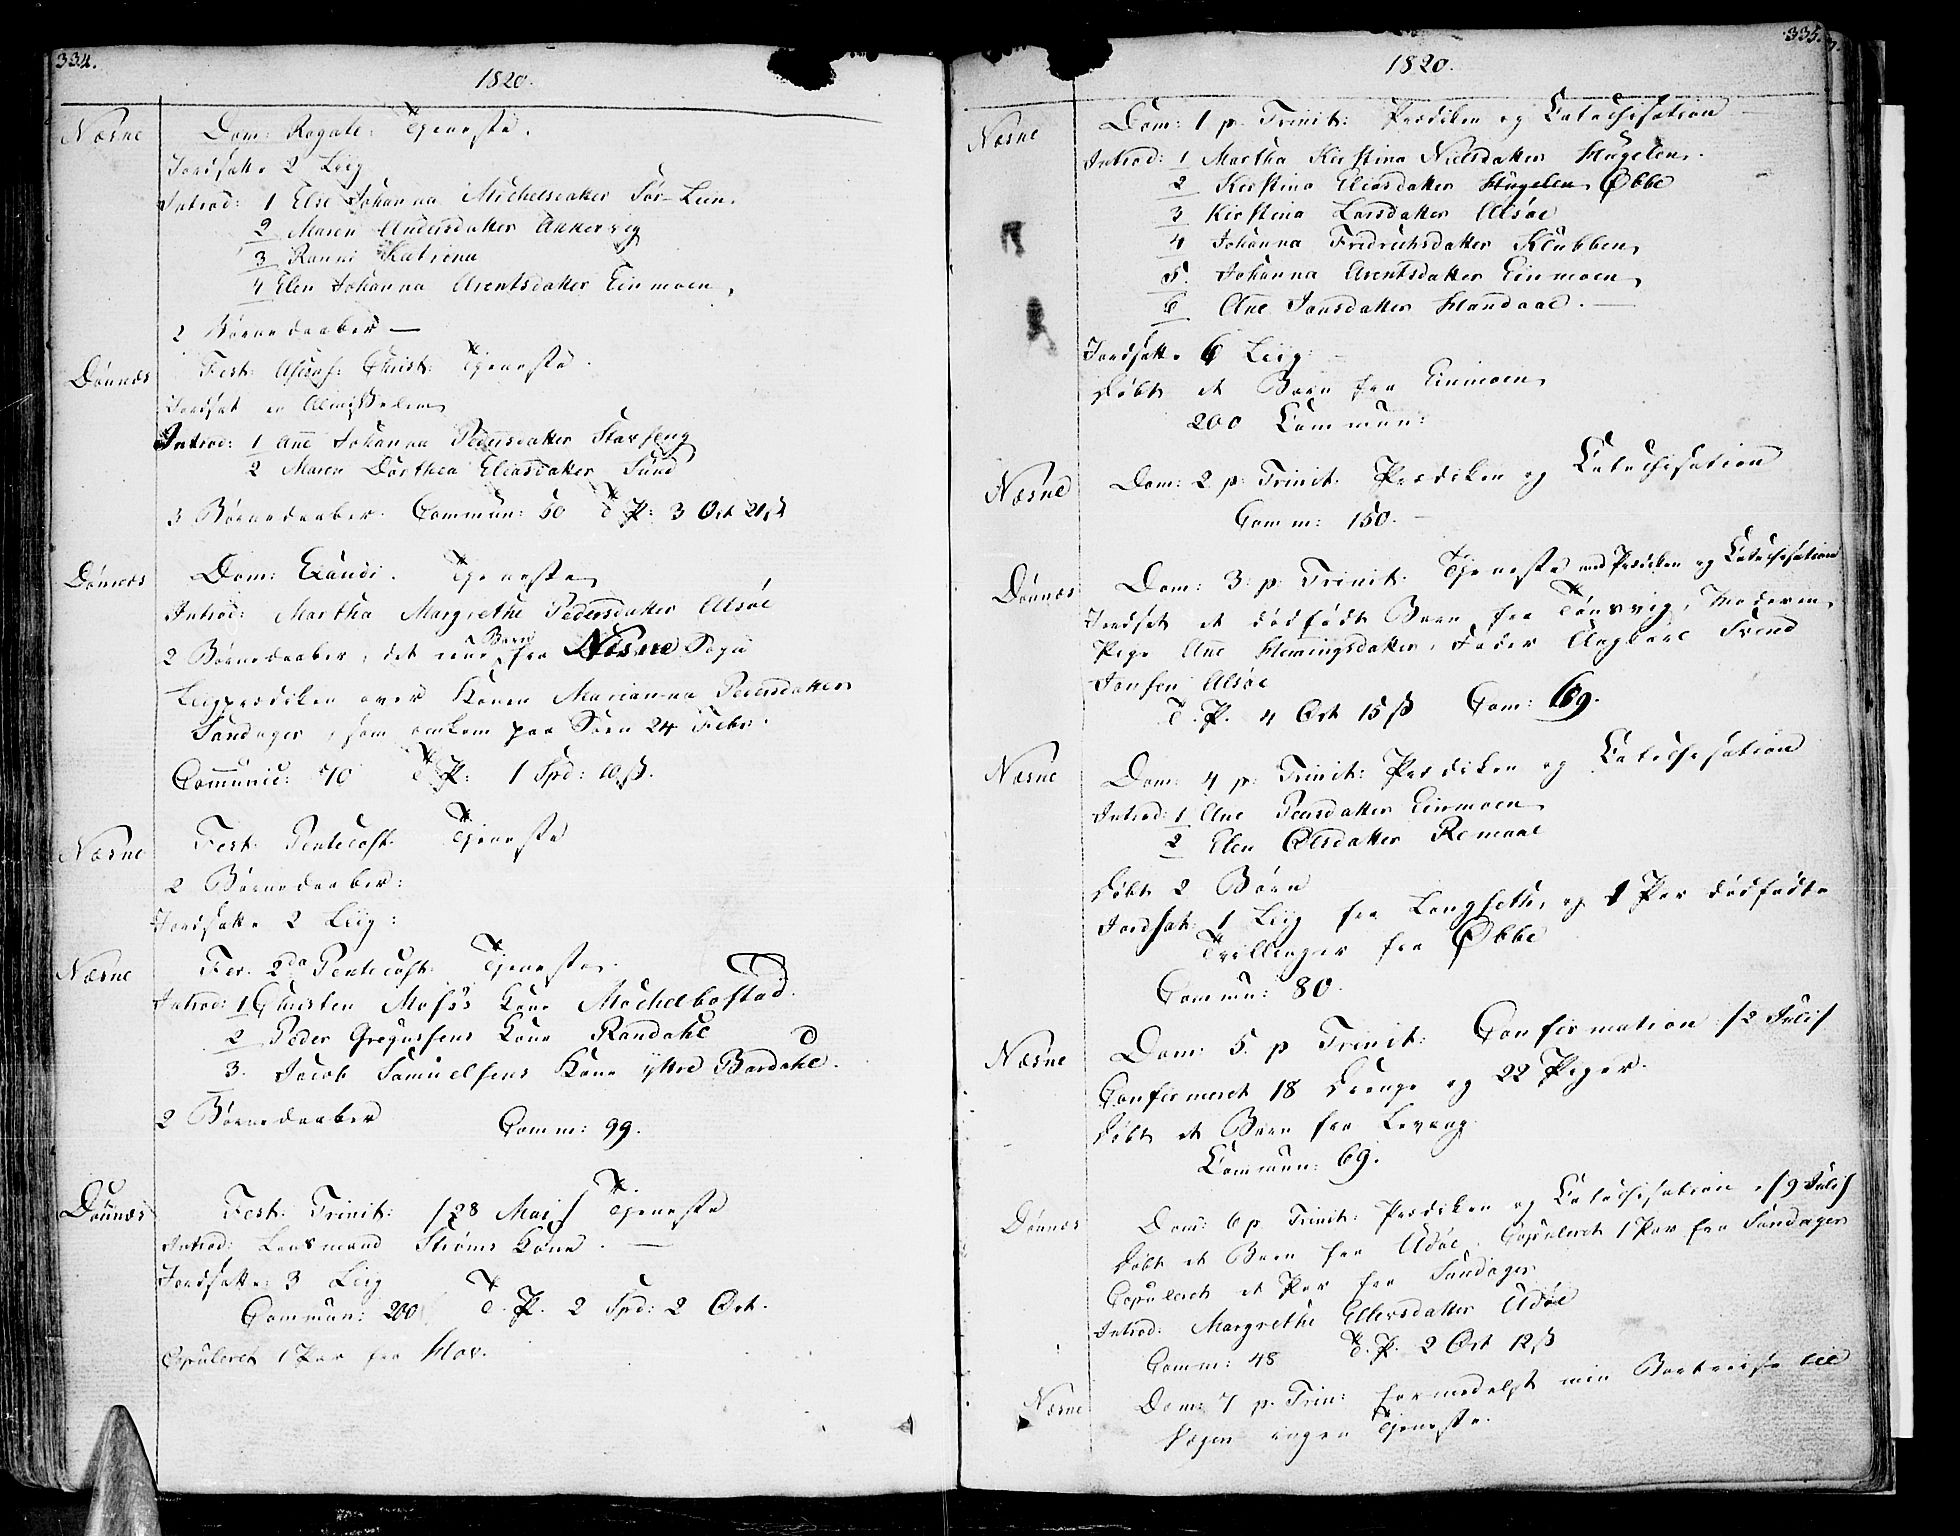 334.
1820.
Næsne Dom: Rogate: Tjeneste.
Jordsatte 2 Liig
Introd: 1 Else Johanna Michelsdatter Sør-Lien.
2 Maren Andersdatter Ankervig
3 Ranni Katrina
4 Elen Johanna Arentsdatter Einmoen,
2 Børnedaaber —
Dønnæs Fest: Ascens: Christi: Tjeneste.
Jordsat en Almisselem
Introd: 1 Ane Johanna Pedersdatter Starseng
2 Maren Dorthea Eliasdatter Sund
3 Børnedaaber. Commun: 50 T. P: 3 Ort 21 ß
Dønnæs Dom: Exaudi. Tjeneste
Introd: Martha Margrethe Pedersdatter Alsøe
2 Børnedaaber, det eene Barn fra Næsne Sogn
Liigprædiken over Konen Marianna Pedersdatter
Sandager, som omkom paa Søen 24 Febr:
Communic: 70 T. P: 1 Spd: 10 ß.
Næsne Fest: Pentecost. Tjeneste
2 Børnedaaber:
Jordsatte 2 Liig:
Næsne Fer. 2da Pentecost: Tjeneste.
Introd: 1 Christen Moses Kone Michelbostad.
2 Peder Gregussens Kone Randahl
3. Jacob Samuelsens Kone yttre Bardahl.
2 Børnedaaber Comm: 99.
Dønnæs Fest: Trinit: /28 Mai/ Tjeneste
Introd: Lensmand Strøms Kone. —
Jordsatte: 3 Liig
Commun: 200 T. P. 2 Spd: 2 Ort.
Copuleret 1 Par fra Hov.
335.
1820.
Næsne Dom: 1 p. Trinit: Prædiken og Catechisation
Introd: 1 Martha Kirstina Nielsdatter Hugelen.
2 Kirstina Eliasdatter Hugelen Øbbe
3 Kirstina Larsdatter Alsøe
4 Johanna Fredrichsdatter Klubben,
5. Johanna Arentsdatter Einmoen,
6 Ane Jonsdatter Handaae. —
Jordsatte 6 Liig:
Døbt et Barn fra Einmoen,
200 Commun:
Næsne Dom: 2 p: Trinit. Prædiken og Catechisation
Comm: 150.
Dønnæs Dom: 3: p: Trinit. Tjeneste med Prædiken og Catechisation
Jordset et dødfødt Barn fra Tønsvig, Moderen,
Pige Ane Hemingsdatter, Fader Svend
Jonsen Alsøe
T. P. 4 Ort 15 ß Com: 69.
Næsne Dom: 4 p: Trinit: Prædiken og Catechisation
Introd: 1 Ane Pedersdatter Einmoen,
2 Elen Olsdatter Remaae
Døbt 2 Børn
Jordsat: 1 Liig fra Langseth, og 1 Par dødfødte
Tvillinger fra Øbbe
Commun: 80.
Næsne Dom: 5. p Trinit: Confirmation /2 Juli/
Confirmeret 18 Drenge og 22 Piger.
Døbt et Barn fra Levang
Commun: 69.
Dønnæs Dom: 6 p. Trinit: Prædiken og Catechisation, /9 Juli/
Døbt et Barn fra Udøe. Copuleret 1 Par fra Sandager
Copuleret et Par fra Sandager
Introd: Margrethe Ellersdatter Udøe
Comm: 48 T. P. 2 Ort 12 ß
Næsne Dom: 7 p. Trin: formedelst min Bortreise til
Vægen ingen Tjeneste.